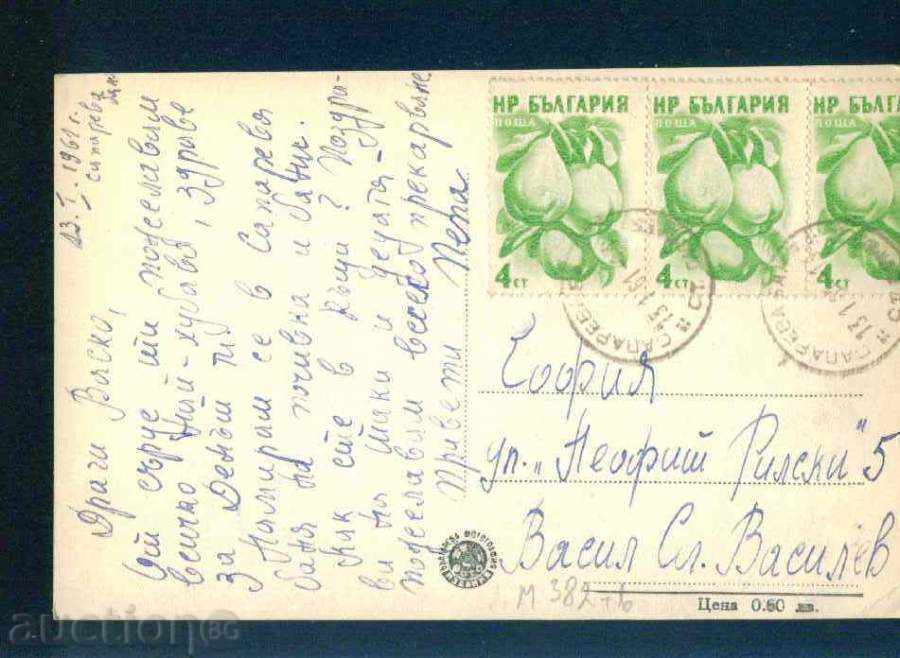 13. I. 1961 г.
Сапарева баня
Драги Васко,
От сърце ти пожелавам
всичко най-хубаво, здраве
за Деньът ти
Намирам се в Сапарева
баня на почивка и бани.
Как сте в къщи? Поздра-
ви Ви и децата
пожелавам весело прекарване
Привети Пепа
НР БЪЛГАРИЯ
ПОЩА
4 СТ
НР БЪЛГАРИЯ
ПОЩА
4 СТ
НР БЪЛГАРИЯ
ПОЩА
4
САПАРЕВА
13 1 61
САПАРЕВА
13 1
София
ул. „Неофит Рилски" 5
Васил Сл. Василев
М 382-б
Цена 0.60 лв.
auction BG